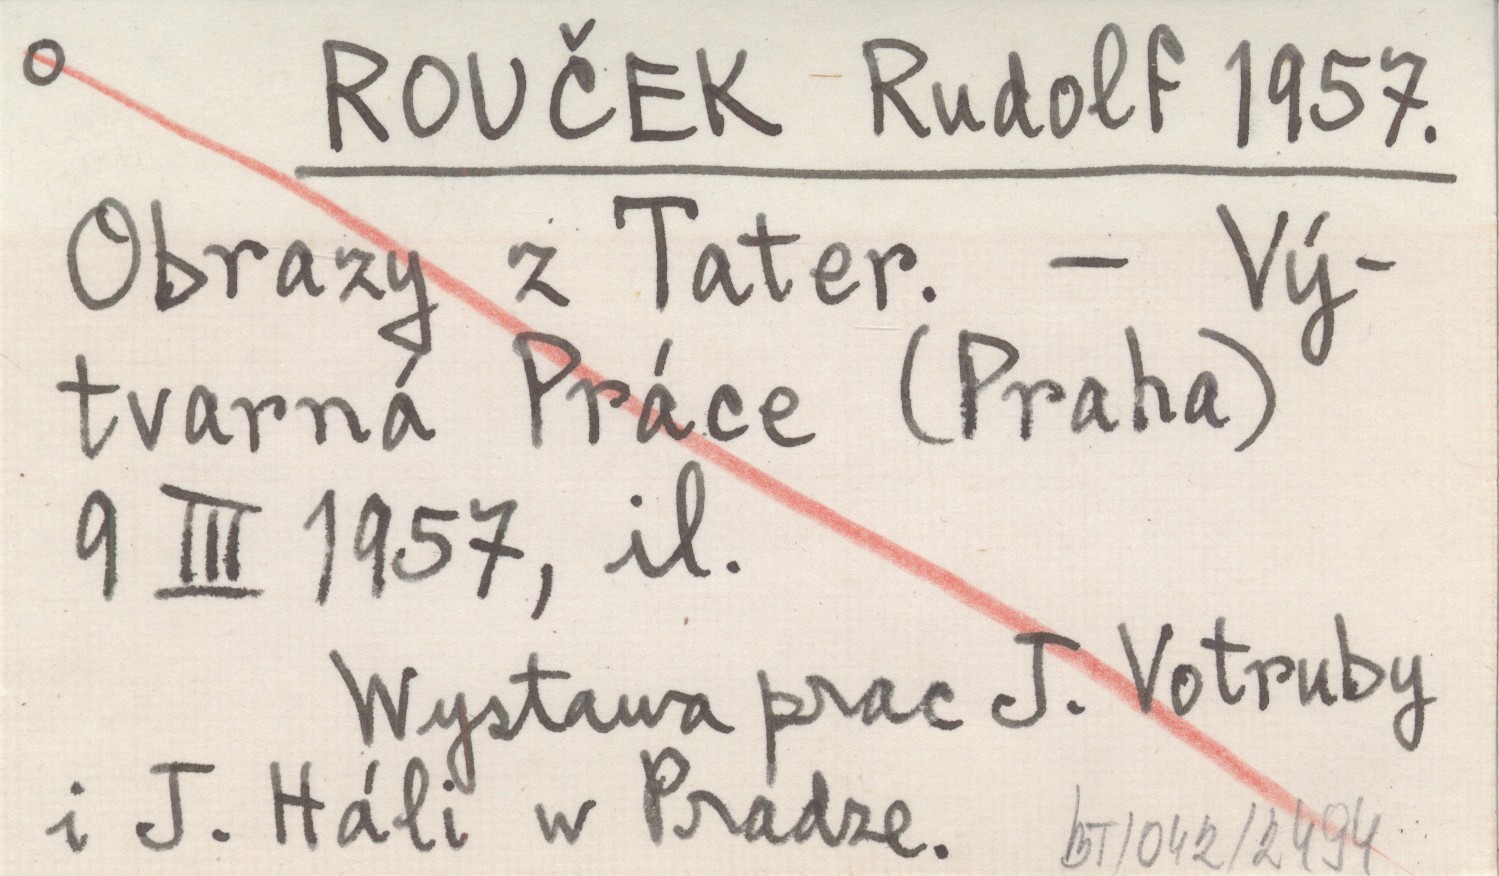 ROUČEK Rudolf 1957.
Obrazy z Tater. – Vý-
tvarná Práce (Praha)
9 III 1957, il.
Wystawa prac J. Votruby
i J. Háli w Pradze.
BT/042/2494